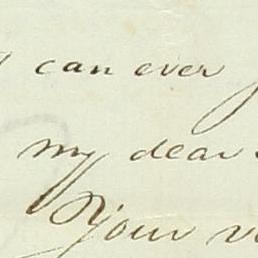 can ever
my dear
Your